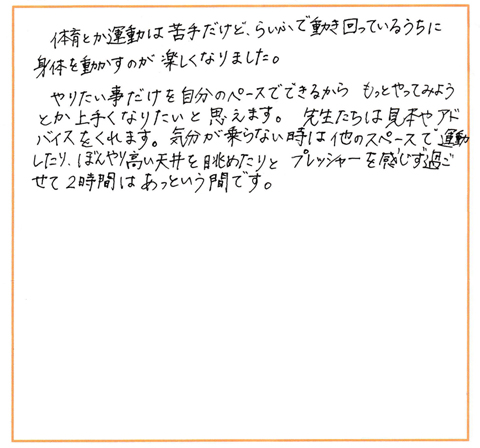 体育とか運動は苦手だけど、らいふで動き回っているうちに
身体を動かすのが楽しくなりました。
やりたい事だけを自分のペースでできるから もっとやってみよう
とか上手くなりたいと思えます。 先生たちは見本やアド
バイスをくれます。気分が乗らない時は他のスペースで運動
したり、ぼんやり高い天井を眺めたりと プレッシャーを感じず過ご
せて2時間はあっという間です。